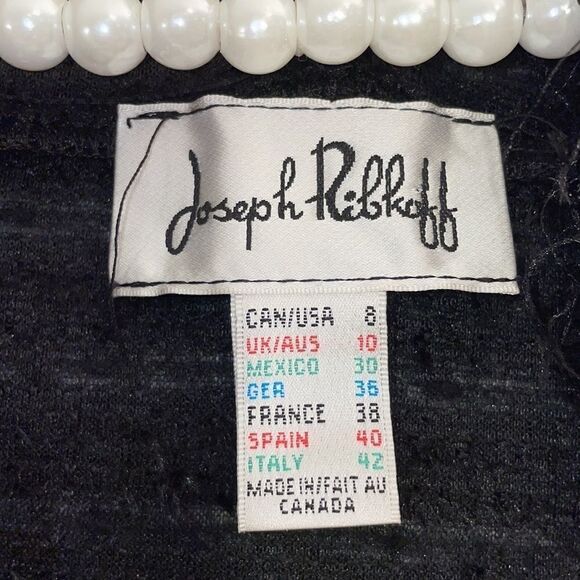 Joseph Ribkoff
CAN/USA 8
UK/AUS 10
MEXICO 30
GER 36
FRANCE 38
SPAIN 40
ITALY 42
MADE IN/FAIT AU
CANADA